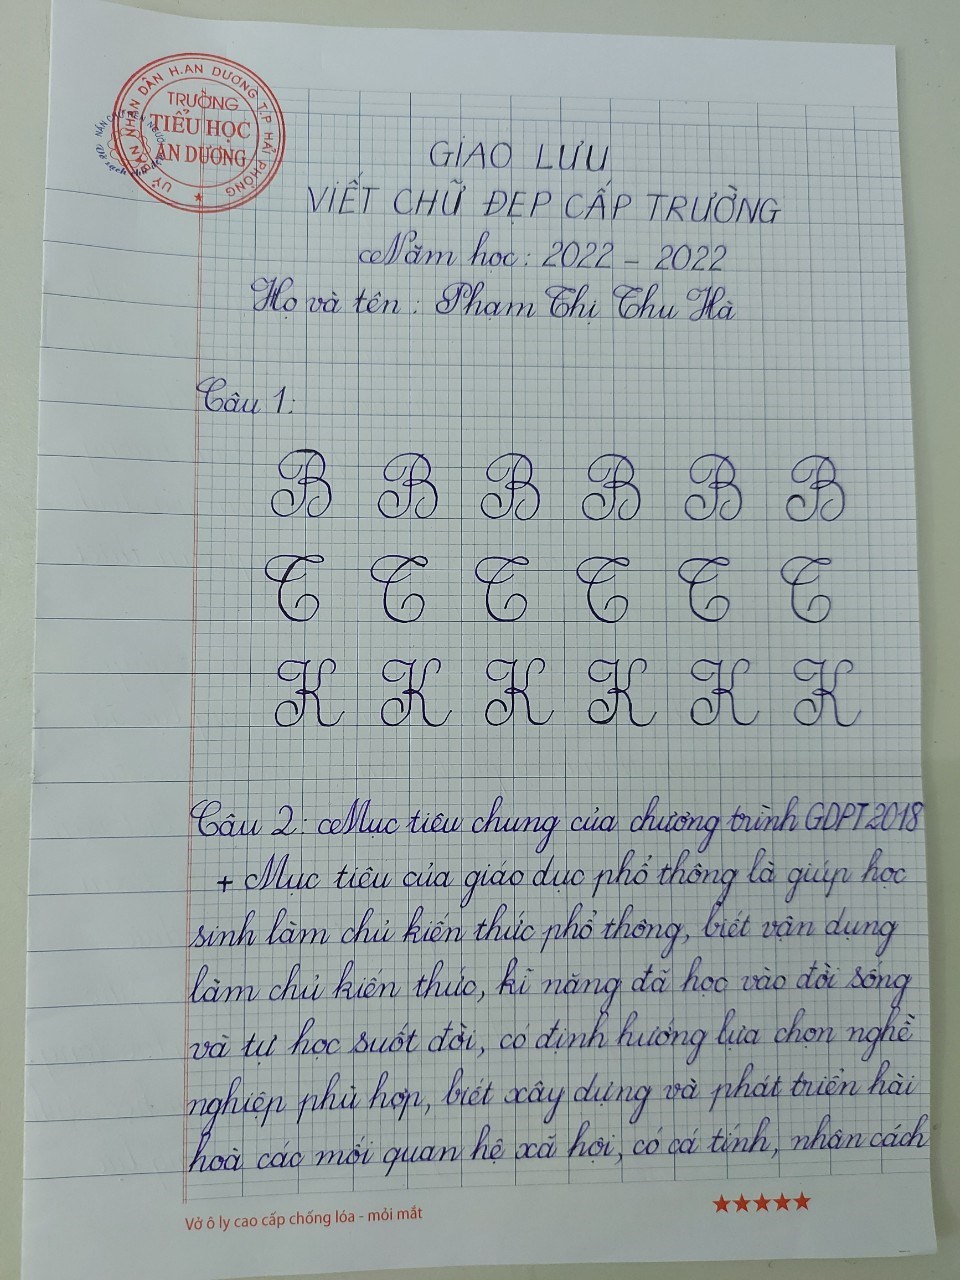 UỶ BAN NHÂN DÂN H.AN DƯƠNG T.P HẢI PHÒNG
TRƯỜNG
TIỂU HỌC
AN DƯƠNG
GIAO LƯU
VIẾT CHỮ ĐẸP CẤP TRƯỜNG
Năm học: 2022 - 2022
Họ và tên : Phạm Thị Thu Hà
Câu 1:
B B B B B B
T T T T T T
K K K K K K
Câu 2: Mục tiêu chung của chương trình GDPT 2018
+ Mục tiêu của giáo dục phổ thông là giúp học
sinh làm chủ kiến thức phổ thông, biết vận dụng
làm chủ kiến thức, kĩ năng đã học vào đời sống
và tự học suốt đời, có định hướng lựa chọn nghề
nghiệp phù hợp, biết xây dựng và phát triển hài
hoà các mối quan hệ xã hội, có cá tính, nhân cách
Vở ô ly cao cấp chống lóa - mỏi mắt